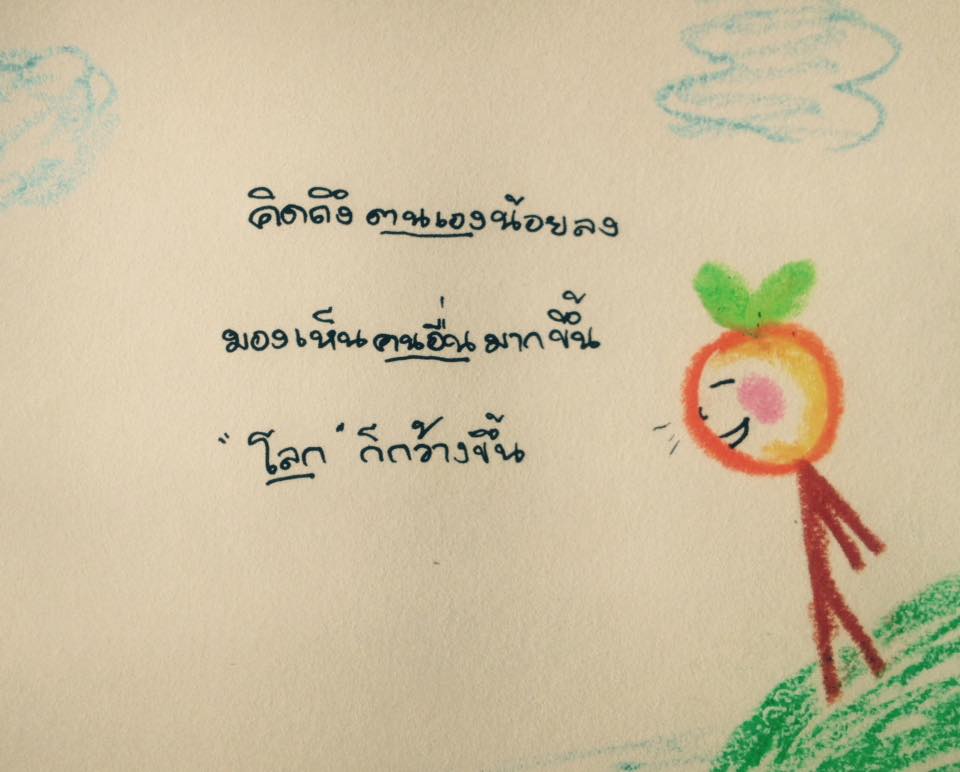 คิดถึง ตนเองน้อยลง
มองเห็น คนอื่น มากขึ้น
"โลก" ก็กว้างขึ้น